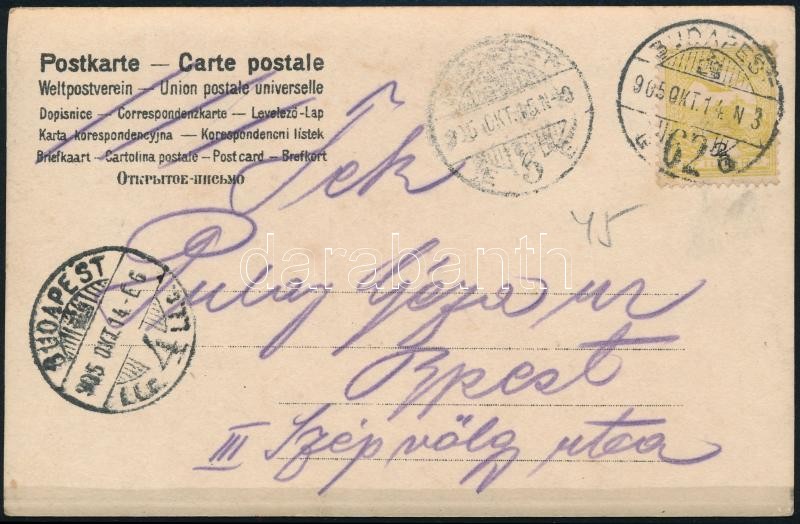 Postkarte — Carte postale
Weltpostverein — Union postale universelle
Dopisnice — Correspondenzkarte — Levelező-Lap
Karta korespondencyjna — Korespondencni lístek
Briefkaart — Cartolina postale — Post card — Brefkort
Открытое-письмо
BUDAPEST
905 OKT. 14. N 3
62
5
45
Tek
Géza ur
Bpest
III Szépvölg utca
BUDAPEST
905 OKT. 14.
4
darabanth